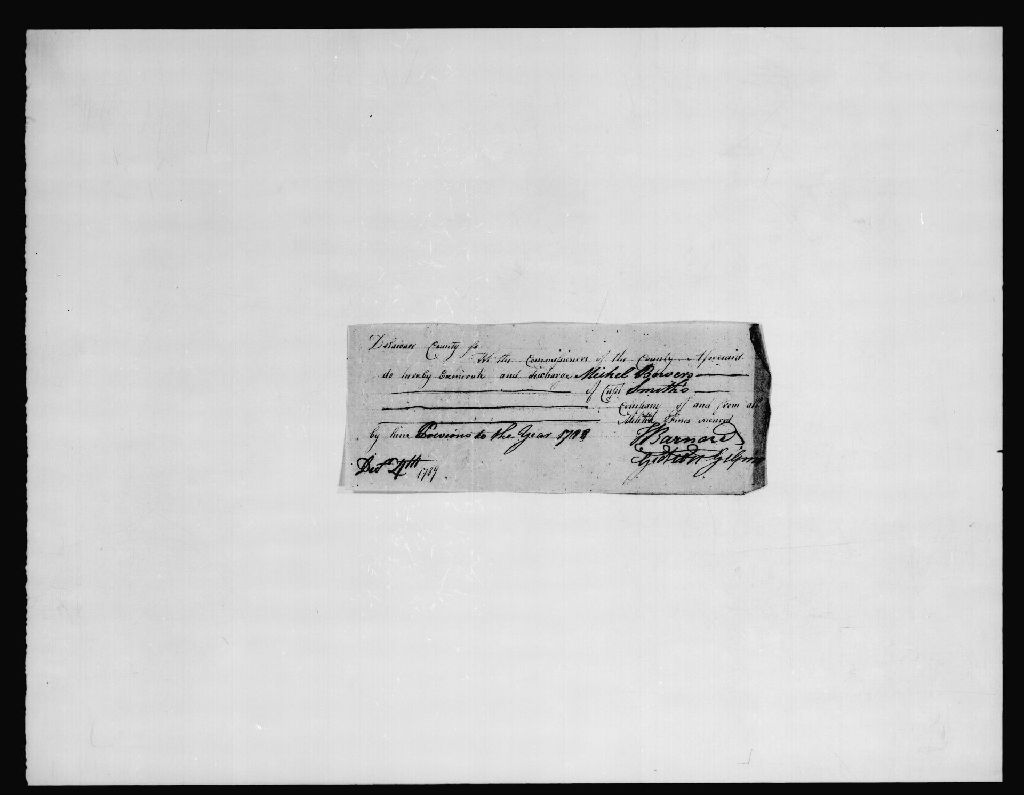 Delaware County ss
We the Commissioners of the County Aforesaid
do hereby Exonerate and discharge Mickel Bowers
of Capt Smith's
Company of and from all
Militia Fines incured
by him Previous to the Year 1788
Barnard
Decr 4th 1789
Gideon Gilpin